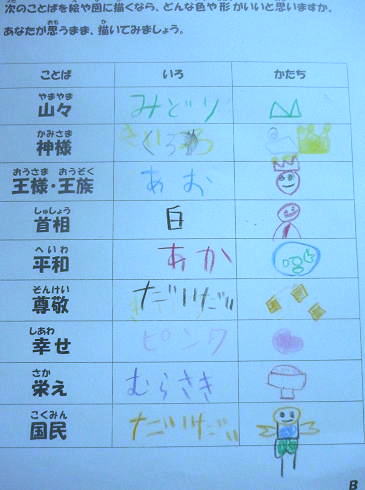 次のことばを絵や図に描くなら、どんな色や形がいいと思いますか。
おも か
あなたが思うまま、描いてみましょう。
ことば いろ かたち
やまやま
山々 みどり
かみさま
神様
おうさま おうぞく
王様・王族 あお
しゅしょう
首相 白
へいわ
平和 あか
そんけい
尊敬
しあわ
幸せ ピンク
さか
栄え むらさき
こくみん
国民
B